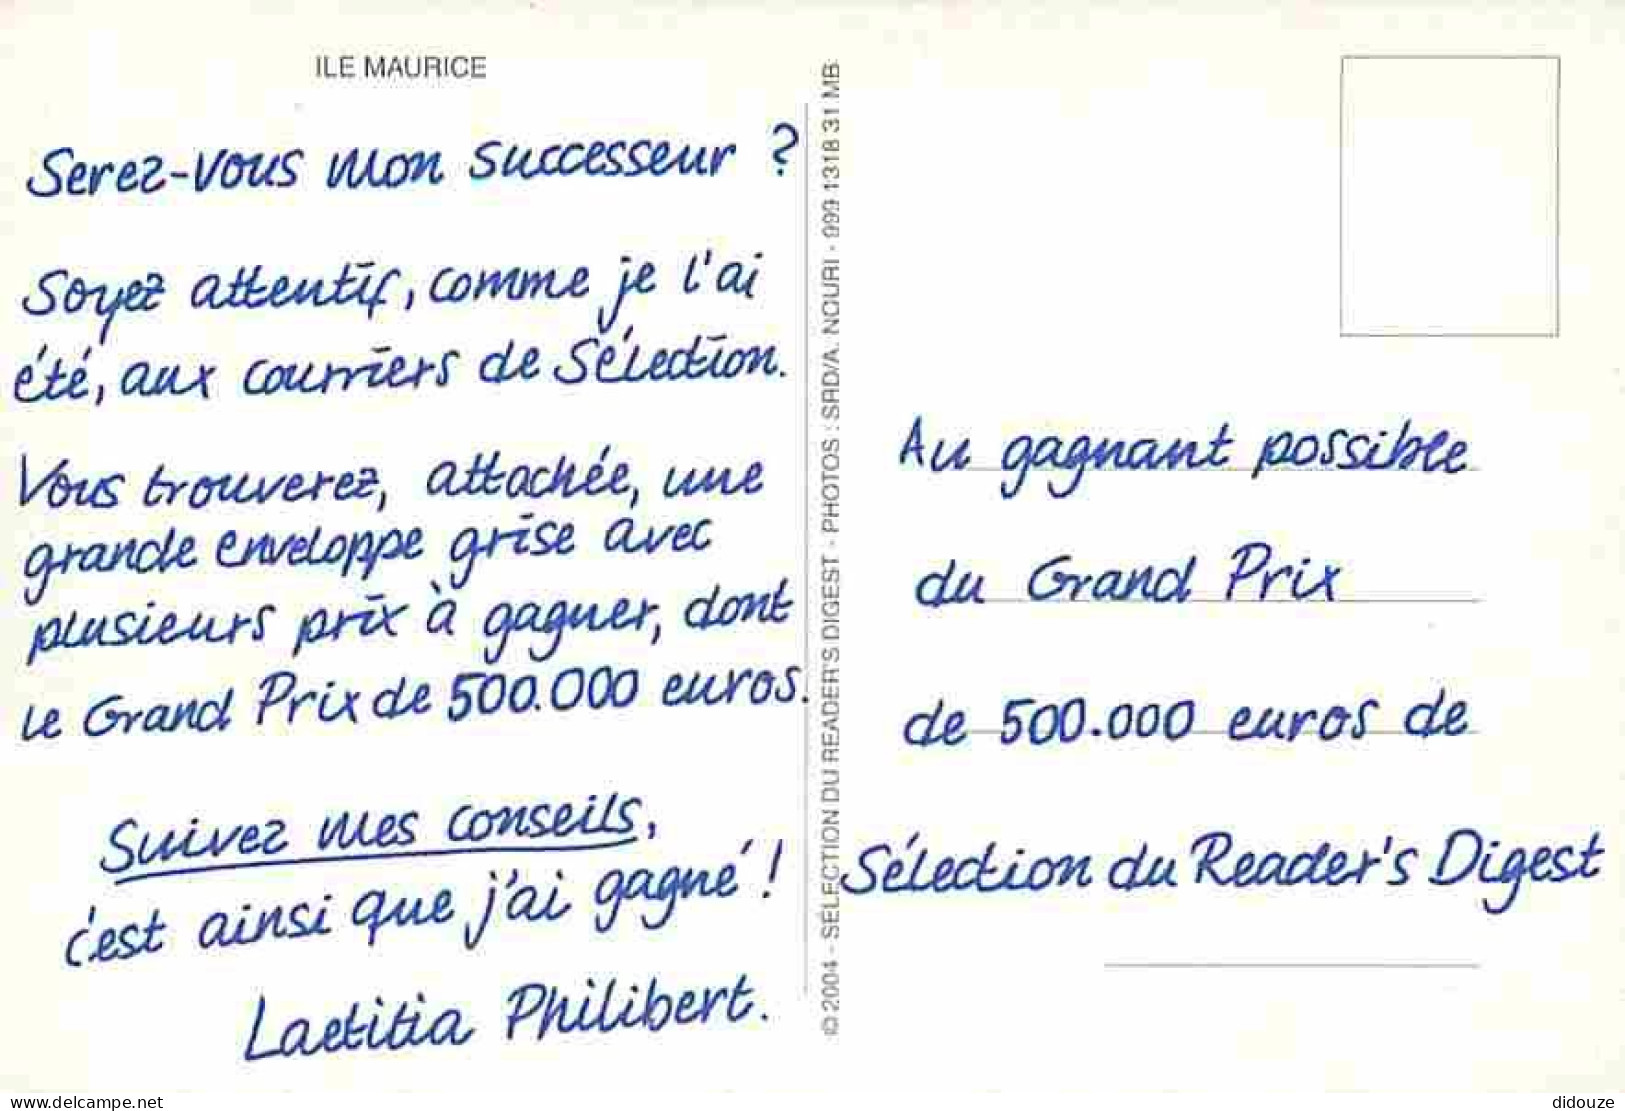 ILE MAURICE
Serez-vous mon successeur ?
Soyez attentif, comme je l'ai
été, aux courriers de Sélection.
Vous trouverez, attachée, une
grande enveloppe grise avec
plusieurs prix à gagner, dont
le Grand Prix de 500.000 euros.
Suivez mes conseils,
c'est ainsi que j'ai gagné !
Laetitia Philibert.
© 2004 - SÉLECTION DU READER'S DIGEST - PHOTOS : SRD/A. NOURI - 999 1318 31 MB
Au gagnant possible
du Grand Prix
de 500.000 euros de
Sélection du Reader's Digest
www.delcampe.net
didouze